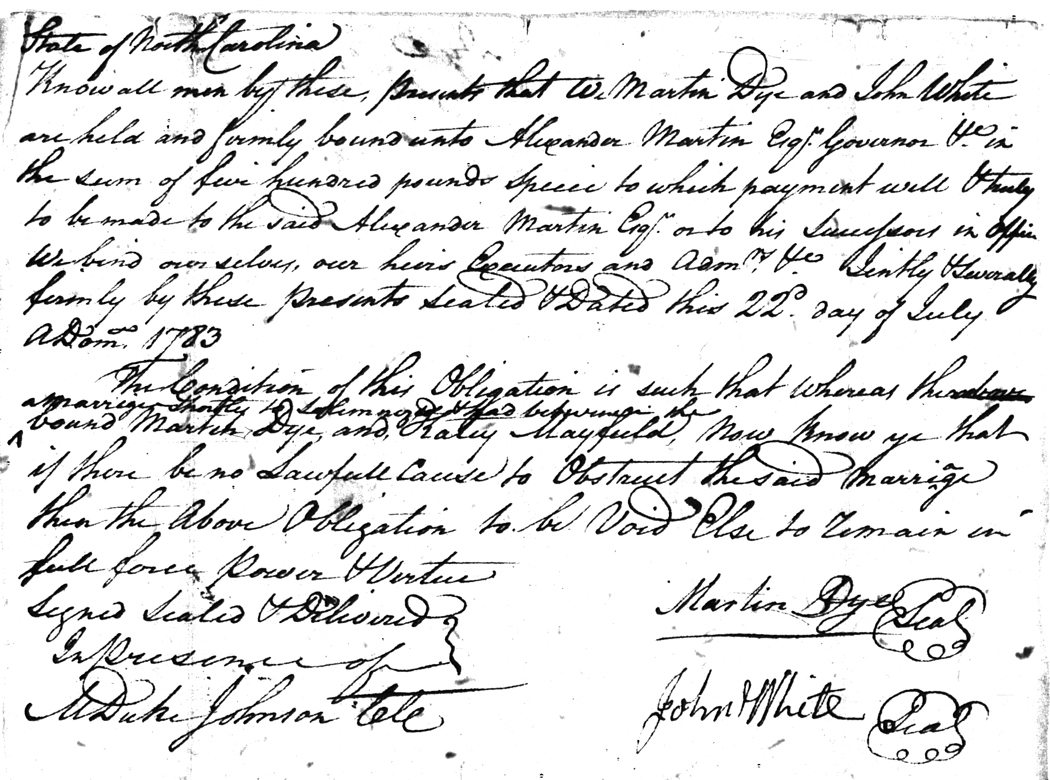 State of North Carolina
Know all men by these, presents that We Martin Dye and John White
are held and firmly bound unto Alexander Martin Esqr. Governor &c. in
the sum of five hundred pounds specie to which payment well & truly
to be made to the said Alexander Martin Esqr. or to his Successors in office
We bind ourselves, our heirs Executors and Admrs. &c. Jointly & Severally
firmly by these presents sealed & Dated this 22d. day of July
ADom. 1783
The Condition of this Obligation is such that whereas there
a marriage shortly to be Solemnized & had between the
bound Martin Dye, and, Katey Mayfield, Now Know ye that
if there be no Lawfull Cause to Obstruct the said Marriage
then the Above Obligation to be Void Else to remain in
full force Power & Vertue
Signed Sealed & Delivered
In Presence of
MDuke Johnson CCC
Martin Dye Seal
John White Seal